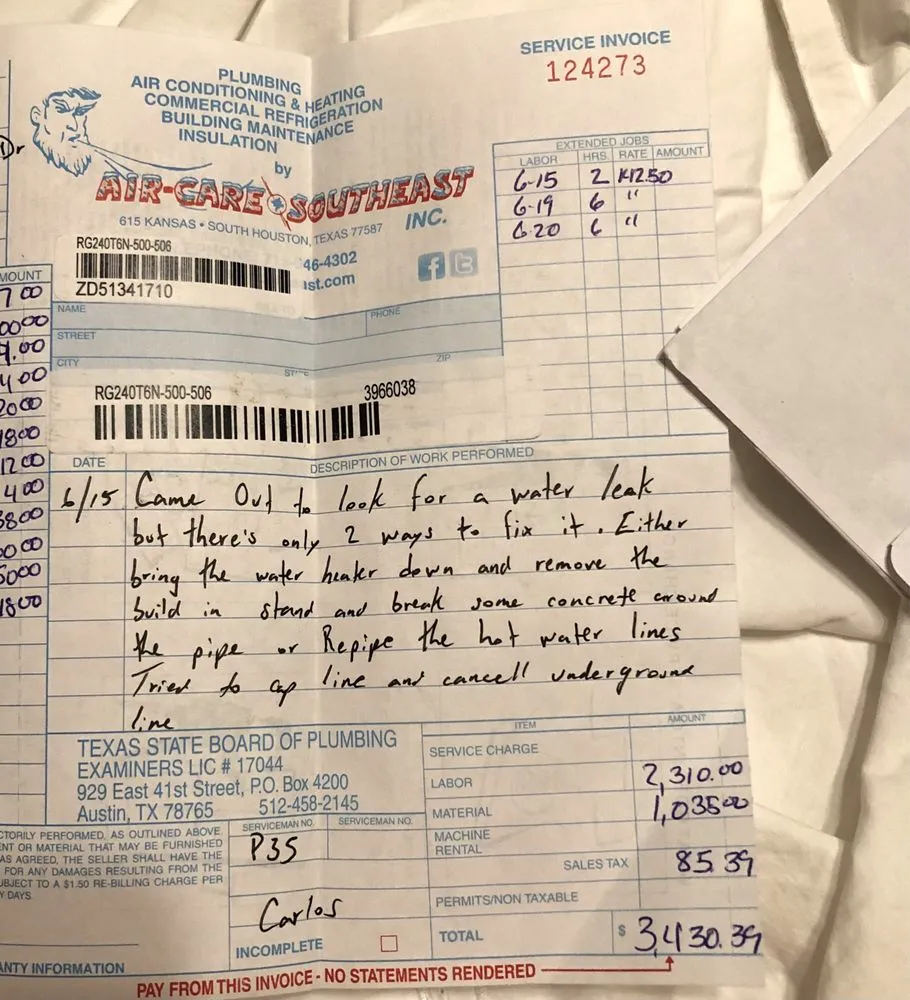 SERVICE INVOICE
124273
PLUMBING
AIR CONDITIONING & HEATING
COMMERCIAL REFRIGERATION
BUILDING MAINTENANCE
INSULATION
by
AIR-CARE SOUTHEAST
INC.
615 KANSAS • SOUTH HOUSTON, TEXAS 77587
46-4302
st.com
RG240T6N-500-506
ZD51341710
EXTENDED JOBS
LABOR HRS. RATE AMOUNT
6-15 2
6-19 6 "
6-20 6 "
MOUNT
7 00
9.00
4 00
1800
12 00
4 00
3800
1800
NAME PHONE
STREET
CITY ZIP
RG240T6N-500-506 3966038
DATE DESCRIPTION OF WORK PERFORMED
6/15 Came Out to look for a water leak
but there's only 2 ways to fix it. Either
bring the water heater down and remove the
build in stand and break some concrete around
the pipe or Repipe the hot water lines
Tried to cap line and cancell underground
line
TEXAS STATE BOARD OF PLUMBING
EXAMINERS LIC # 17044
929 East 41st Street, P.O. Box 4200
Austin, TX 78765 512-458-2145
ITEM AMOUNT
SERVICE CHARGE
LABOR 2,310.00
MATERIAL 1,035 00
MACHINE
RENTAL
SALES TAX 85.39
PERMITS/NON TAXABLE
TOTAL $ 3,430.39
CTORILY PERFORMED, AS OUTLINED ABOVE.
ENT OR MATERIAL THAT MAY BE FURNISHED
AS AGREED, THE SELLER SHALL HAVE THE
FOR ANY DAMAGES RESULTING FROM THE
UBJECT TO A $1.50 RE-BILLING CHARGE PER
Y DAYS.
SERVICEMAN NO. SERVICEMAN NO.
P35
Carlos
INCOMPLETE
ANTY INFORMATION
PAY FROM THIS INVOICE - NO STATEMENTS RENDERED